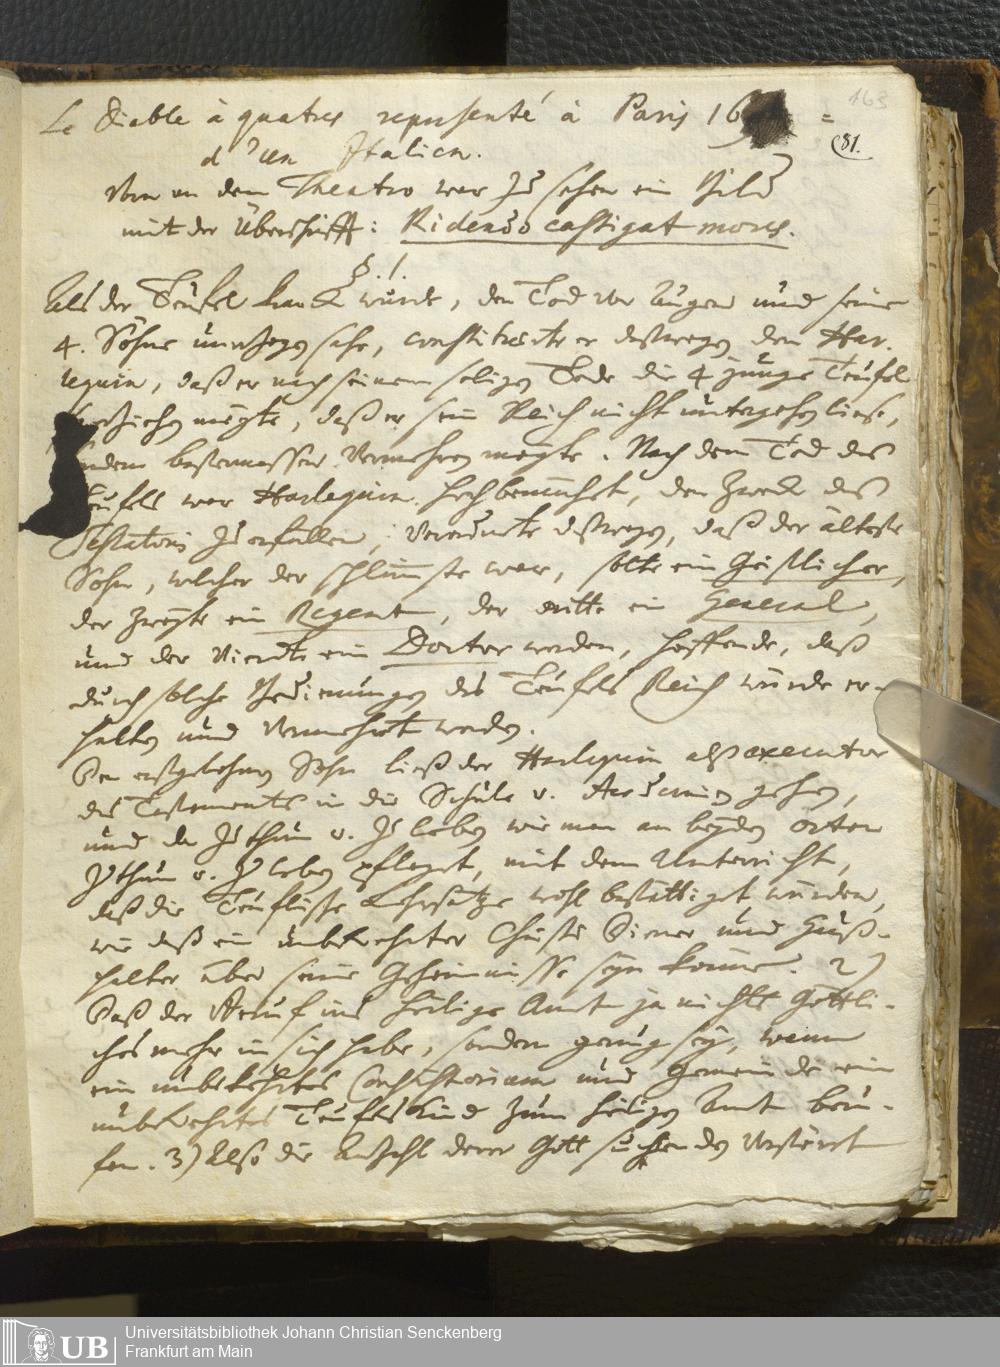 163
Le Diable à quatres representé à Paris 16
81.
d'un Italien.
Vorn an dem Theatro war zu sehen ein Bild
mit der Überschrifft: Ridendo castigat mores.
§. 1.
Als der Teüfel kranck wurde, den Tod vor Augen und seine
4. Söhne unerzogen sahe, constituirte er deswegen den Har-
lequin, daß er nach seinem seligen Tode die 4 junge Teüfel
erziehen mögte, daß er sein Reich nicht untergehen liese,
sondern bestermassen vermehren mögte. Nach dem Tod des
Teüfels war Harlequin höchst bemüht, den Zweck des
Testatoris zu erfüllen, verordnete deswegen, daß der älteste
Sohn, welcher der schlimmste war, solte ein Geistlicher,
der zweyte ein Regent, der dritte ein General,
und der Vierdte ein Doctor werden, hoffende, daß
durch solche Bedienungen des Teüfels Reich würde er-
halten und vermehrt werden.
Den erstgebohrnen Sohn ließ der Harlequin alß executor
des Testaments in die Schule u. Academien gehen,
und da zu thun u. zu leben wie man an beyden orten
zu thun u. zu leben pfleget, mit dem Unterricht,
daß die Teüflische Lehrsätze wohl bestättiget würden,
wie daß ein unbekehrter Christi Diener und Hauß-
halter über seine Geheimnisse seyn könne. 2)
Daß der Beruf ins heilige Amt ja nichts Göttli-
ches mehr in sich habe, sondern genug sey, wenn
ein unbekehrtes Consistorium und Gemeinde ein
unbekehrtes Teüfels Kind zum heiligen Amt beru-
fen. 3) Also die Anzahl derer Gott suchenden
Universitätsbibliothek Johann Christian Senckenberg
UB
Frankfurt am Main